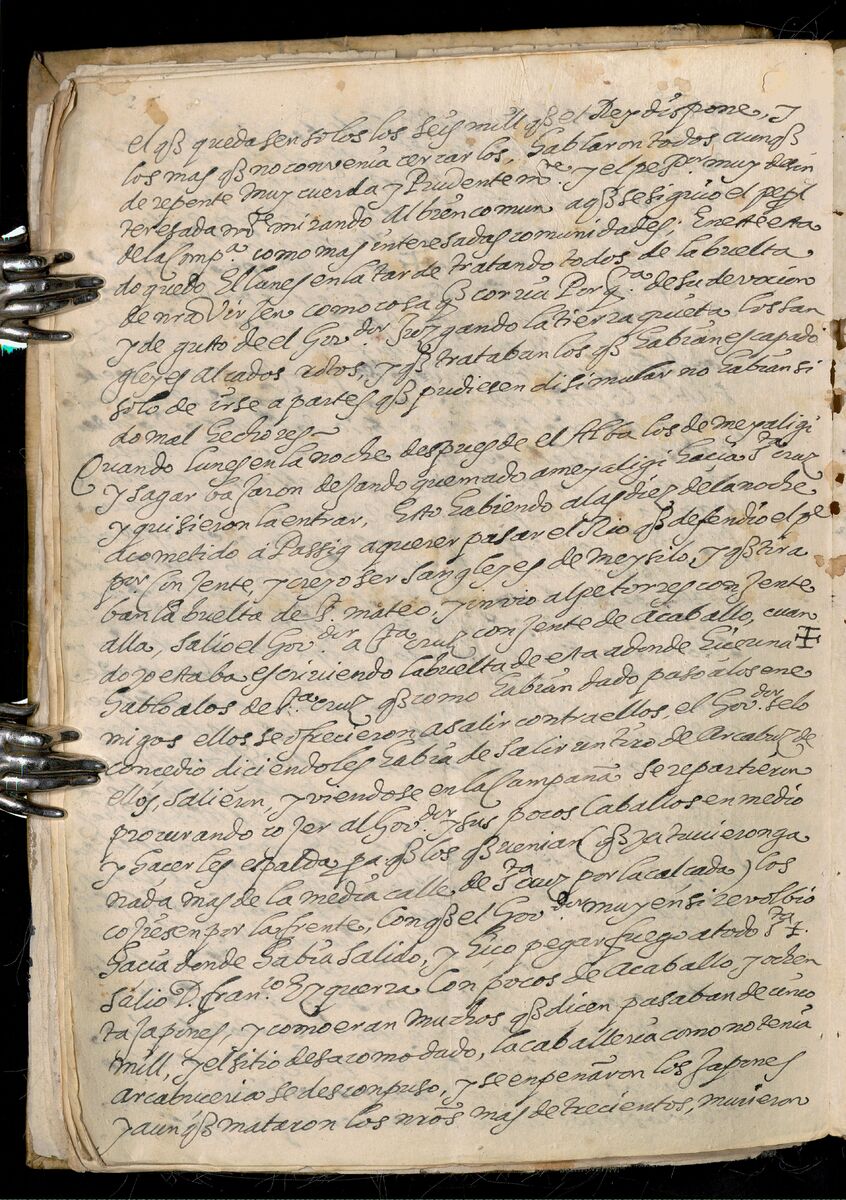 el qe quedasen solos los seis mill qe el Rey dispone, y
los mas qe no convenia cercarlos, hablaron todos aunqe
de repente muy cuerda y Prudentemte. y el pe Por muy desin
teresadamte mirando al bien comun aqe se siguio el
de la Compa. como mas interesadas comunidades; En este esta
do quedo El lunes en la tarde tratando todos de la buelta
de nra Virgen como cosa qe corria Por qta de su devocion
y de gusto de el Govdor Juzgando la tierra quieta los san
gleyes Alcados rotos, y qe trataban los qe habian escapado
solo de irse a partes qe pudiesen disimular no habian si
do mal hechores
Quando lunes en la noche despues de el Alba los de meyaligi
y sagar bajaron dejando quemado a meyaligi hacia Sta cruz
y quisieron la entrar, Esto habiendo a las diez de la noche
acometido a Passig a querer pasar el Rio qe defendio el pe
por Con jente, y creyo ser sangleyes de meysilo, y qe tira
ban la buelta de S. mateo, y invio al pe torres con jente
alla, salio el Govdor a Sta cruz con jente de Acaballo, cuan
do yo estaba escriviendo la buelta de esta adonde hice una
hablo a los de Sta cruz qe como habian dado paso a los ene
migos ellos se ofrecieron a salir contra ellos, el Govdor se lo
concedio diciendoles habia de salir un tiro de Arcabuz de
ellos, salieron, y viendose en la Campaña se repartieron
procurando cojer al Govdor y sus pocos Caballos en medio
y hacerles espalda pa. qe los qe venian (qe ya tuvieron ga
nada mas de la media calle de Sta cruz por la calcada) los
cojiesen por la frente, Con qe el Govdor muy en si revolbio
hacia donde habia salido, y hiço pegar fuego a todo Sta ‡.
salio D. Franco Ezquerra Con pocos de Acaballo y ochen
ta Japones, y como eran muchos qe dicen pasaban de cinco
mill, y el sitio desacomodado, la caballeria como no tenia
arcabuceria se desconpuso, y se enpeñaron los Japones
y aunqe mataron los nros mas de trecientos, murieron